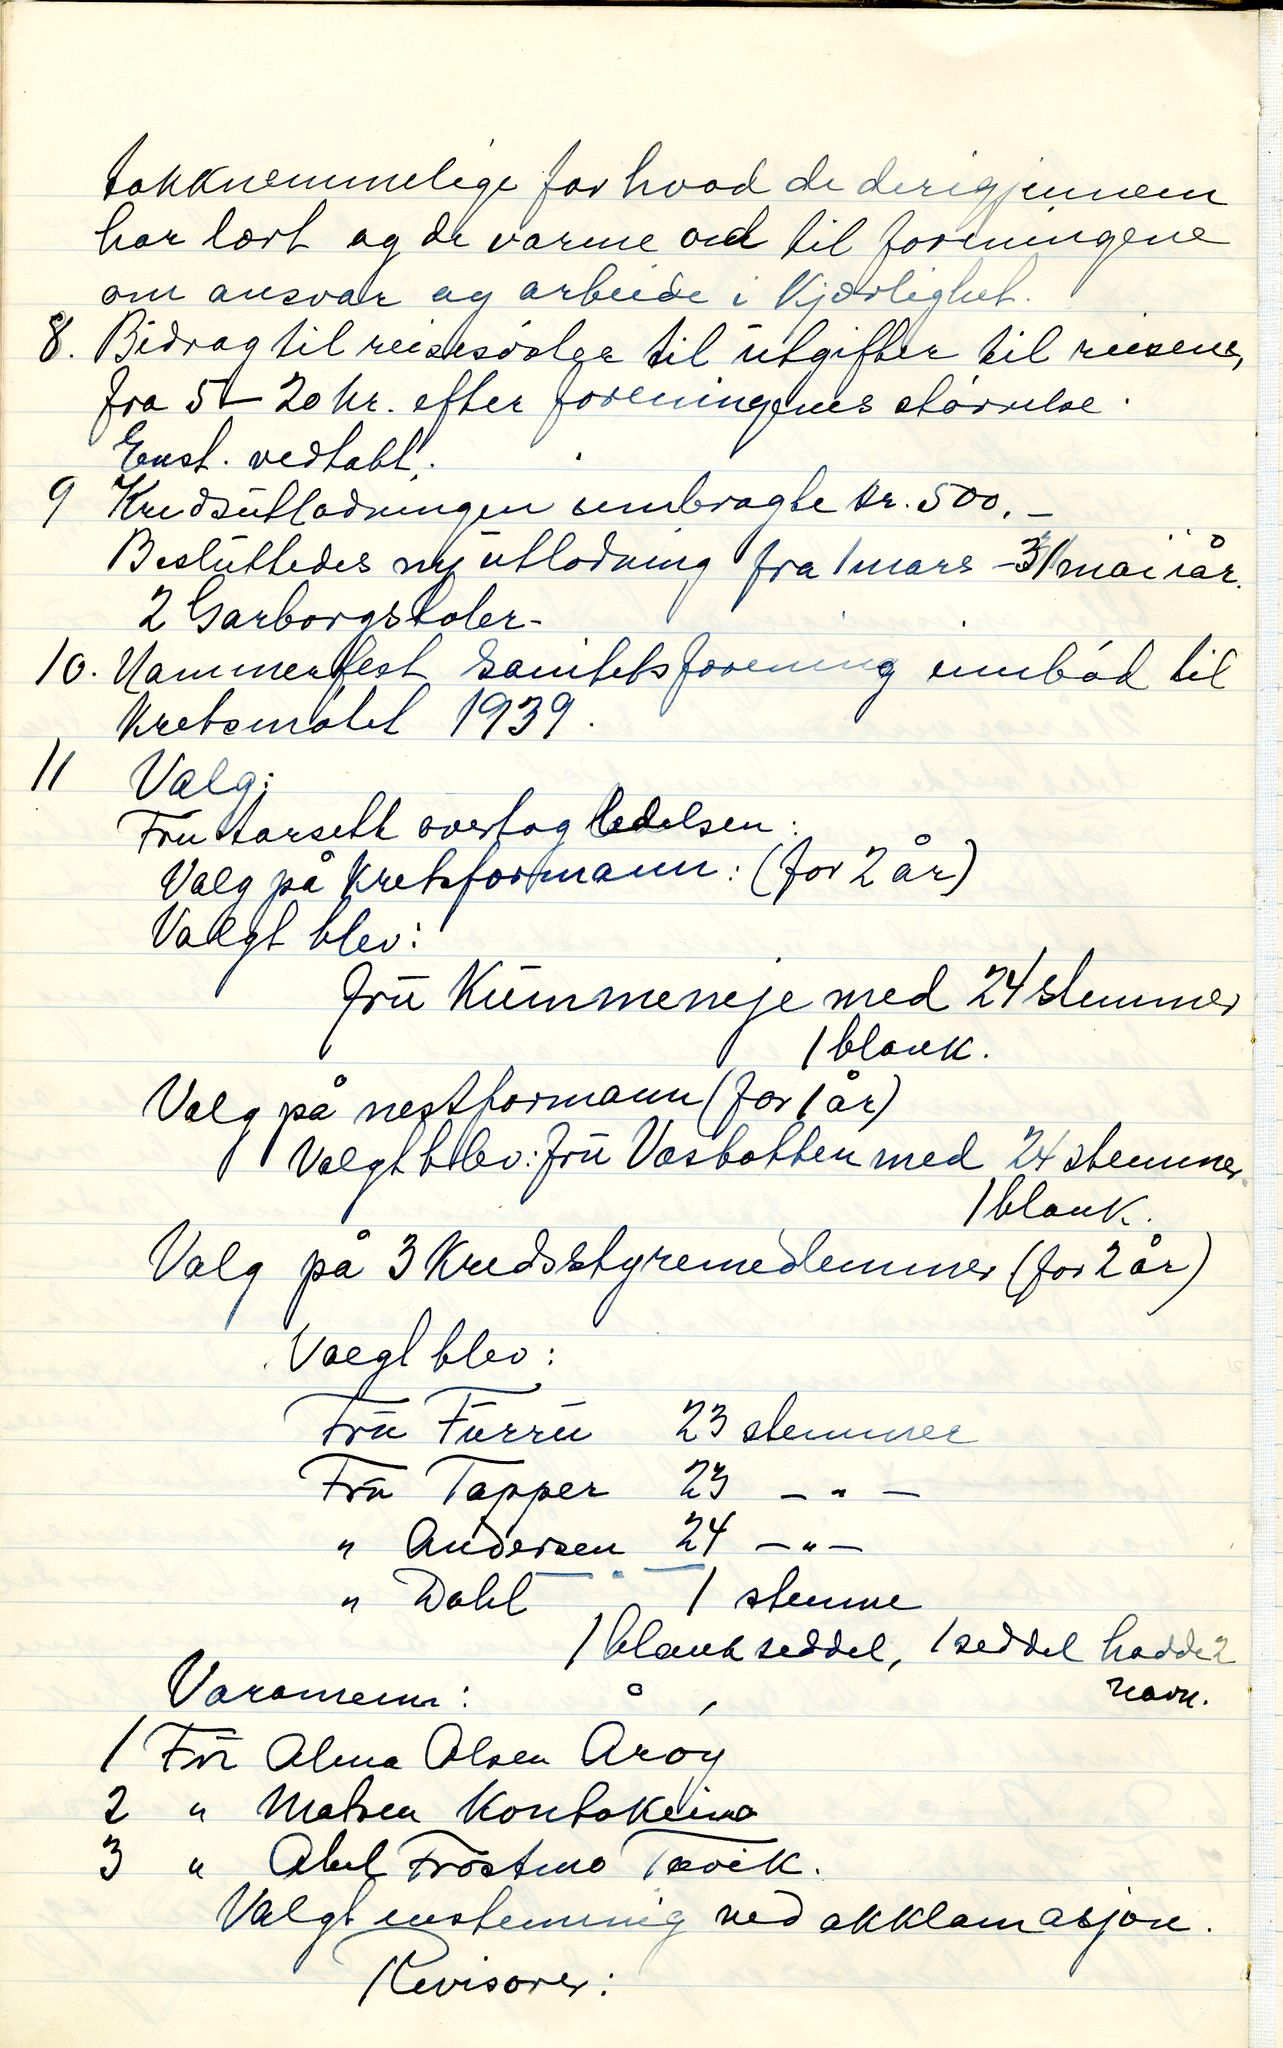 takknemmelige for hvad de derigjennem
har lært og de varme ord til foreningene
om ansvar og arbeide i Kjærlighet.
8. Bidrag til reisesöster til utgifter til reisene,
fra 5 - 20 kr. efter foreningenes størrelse.
Enst. vedtatt.
9 Kredsutlodningen innbragte kr. 500.-
Besluttedes ny utlodning fra 1 mars - 31 mai i år.
2 Garborgstoler -
10. Hammerfest Sanitetsforening innbød til
Kretsmøtet 1939.
11 Valg:
Fru Aarseth overtog ledelsen:
Valg på Kretsformann: (for 2 år)
Valgt blev:
fru Kummeneje med 24 stemmer
1 blank.
Valg på nestformann (for 1 år)
Valgt blev: fru Vasbotten med 24 stemmer.
1 blank.
Valg på 3 Kredsstyremedlemmer (for 2 år)
Valgt blev:
Fru Furru 23 stemmer
Fru Tapper 23 — " —
" Andersen 24 — " —
" Dahl 1 stemme
1 blank seddel, 1 seddel hadde 2
navn.
Varamenn:
1 Fru Alma Olsen Årøy
2 " Matsen Kontokeino
3 " Abel Frostmo
Valgt enstemmig ved akklamasjon.
Revisorer: